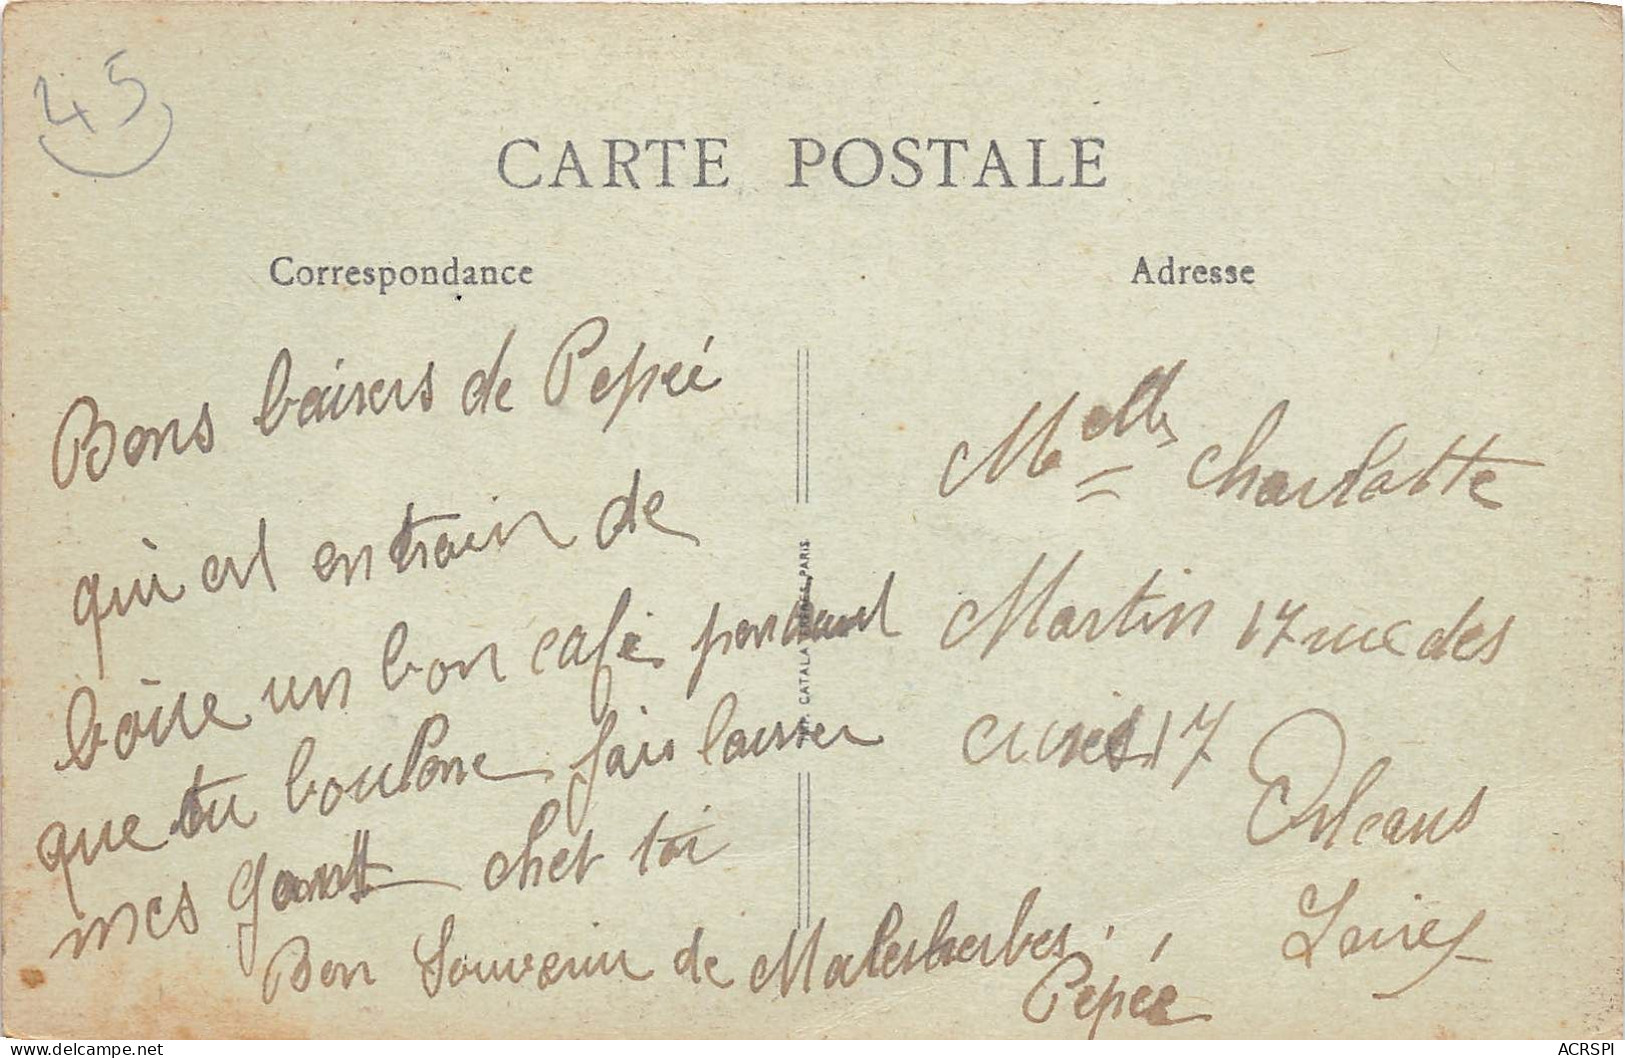 45
CARTE POSTALE
Correspondance
Bons baisers de Pepée
qui est entrain de
boire un bon café pendant
que tu boulone fais laisser
mes gant chet toi
Bon Souvenir de Malesherbes.
Pepée
Adresse
Melle Charlotte
Martin 17 rue des
17
Orleans
Loiret
CATALA PARIS
ACRSPI